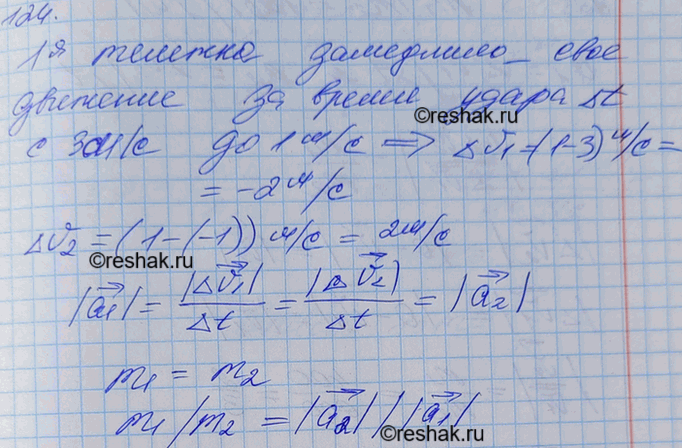 124.
1я тележка замедлило свое
движение за время удара Δt
©reshak.ru
с 3 м/с до 1 м/с => Δv₁ = (1-3) м/с =
= -2 м/с
Δv₂ = (1-(-1)) м/с = 2 м/с
©reshak.ru
|a⃗₁| = |Δv⃗₁|/Δt = |Δv⃗₂|/Δt = |a⃗₂|
m₁ = m₂
©reshak.ru
m₁/m₂ = |a⃗₂|/|a⃗₁|